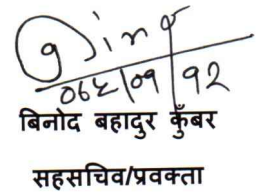 ०७९/०१/१२
बिनोद बहादुर कुँबर
सहसचिव/प्रवक्ता